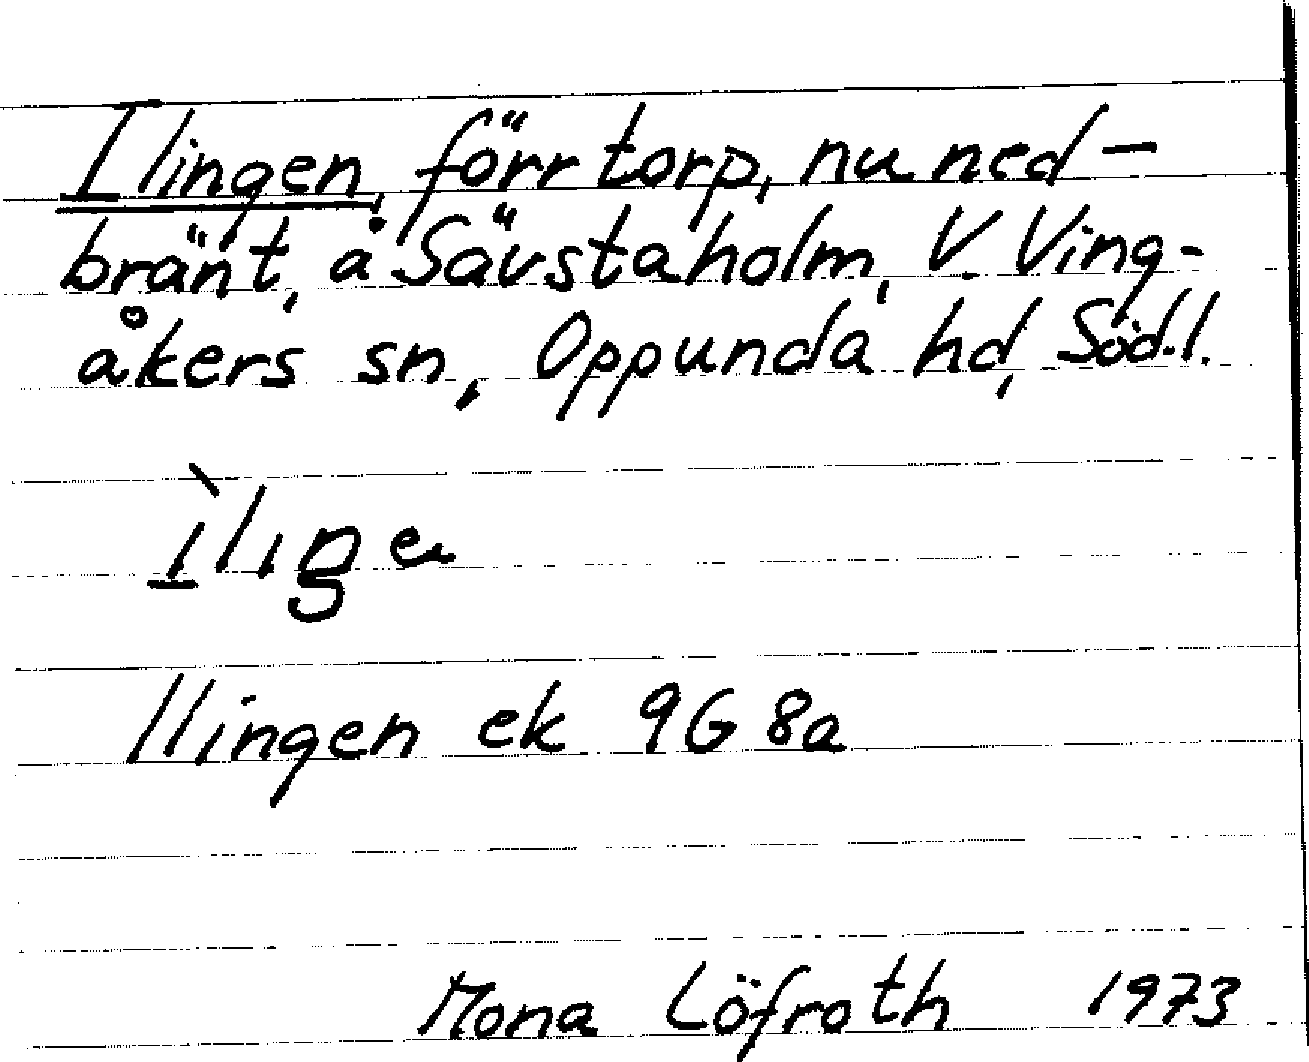 Ilingen, förr torp, nu ned-
bränt, å Sävstaholm, V. Ving-
åkers sn, Oppunda hd, Söd.l.
Ilingen ek 9G 8a
Mona Löfroth 1973